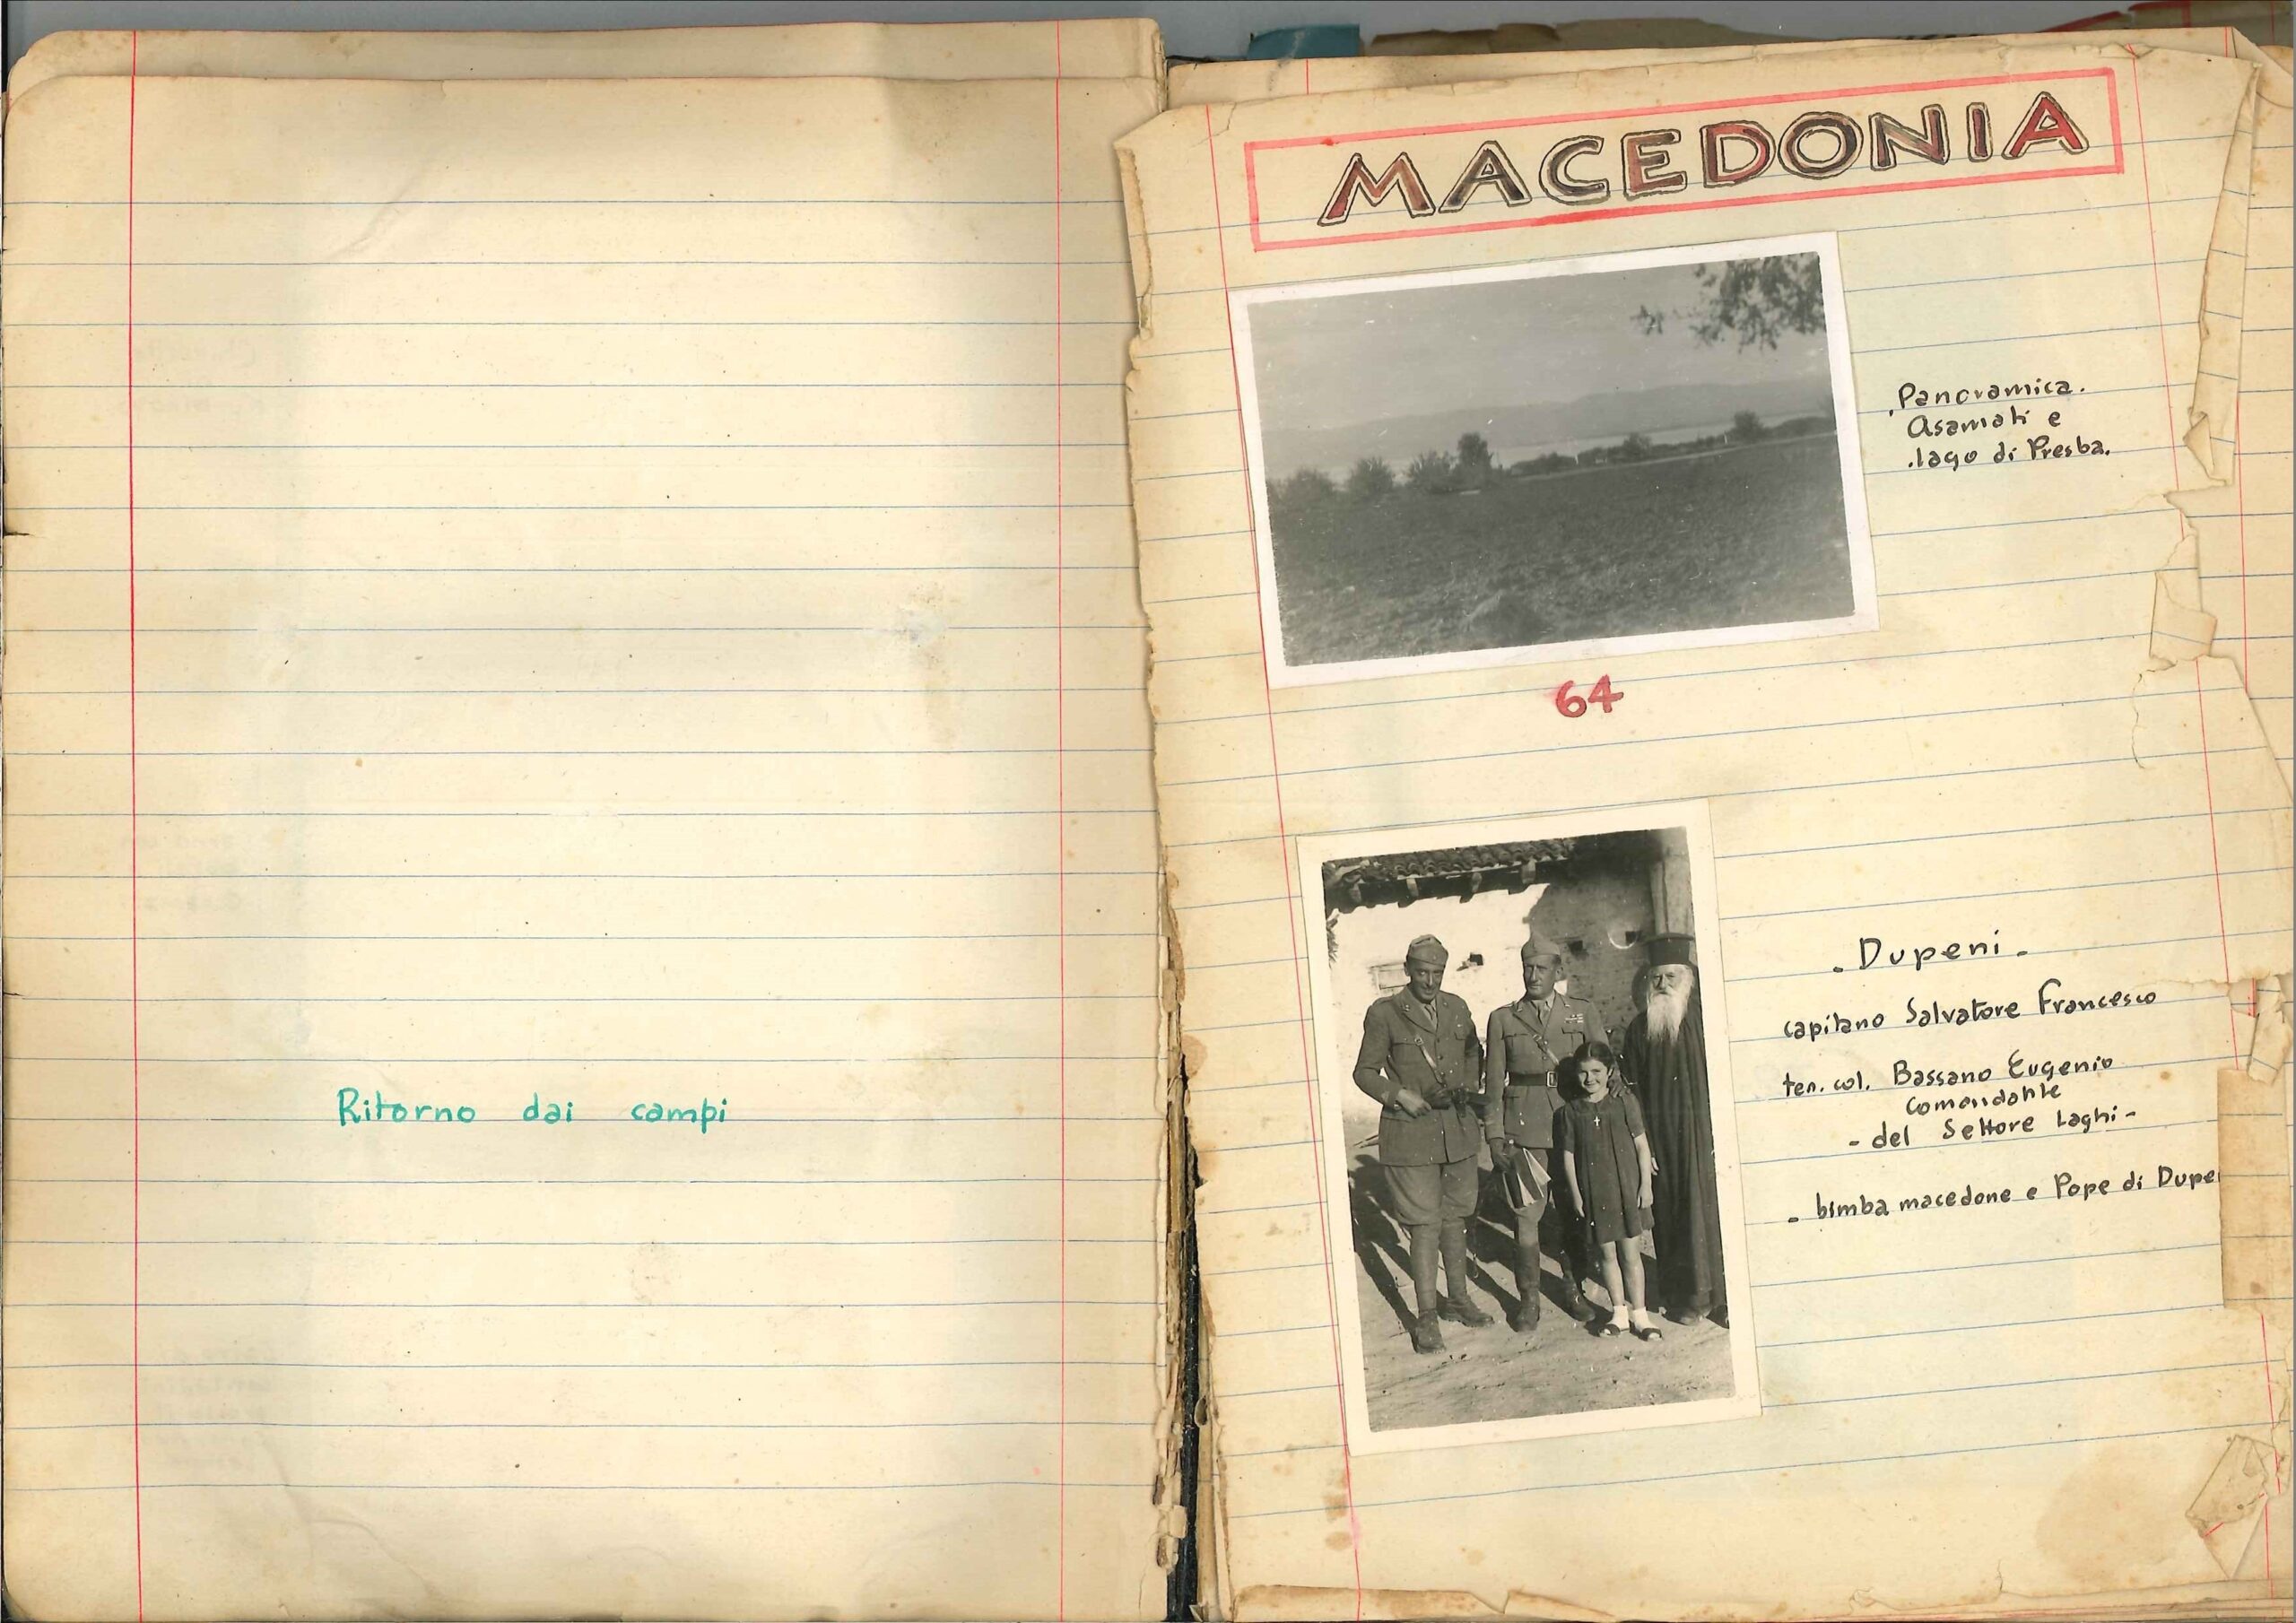 Ritorno dai campi
MACEDONIA
Panoramica.
Asamati e
lago di Presba.
64
- Dupeni -
capitano Salvatore Francesco
ten. col. Bassano Eugenio
Comandante
- del Settore Laghi -
- bimba macedone e Pope di Dupe